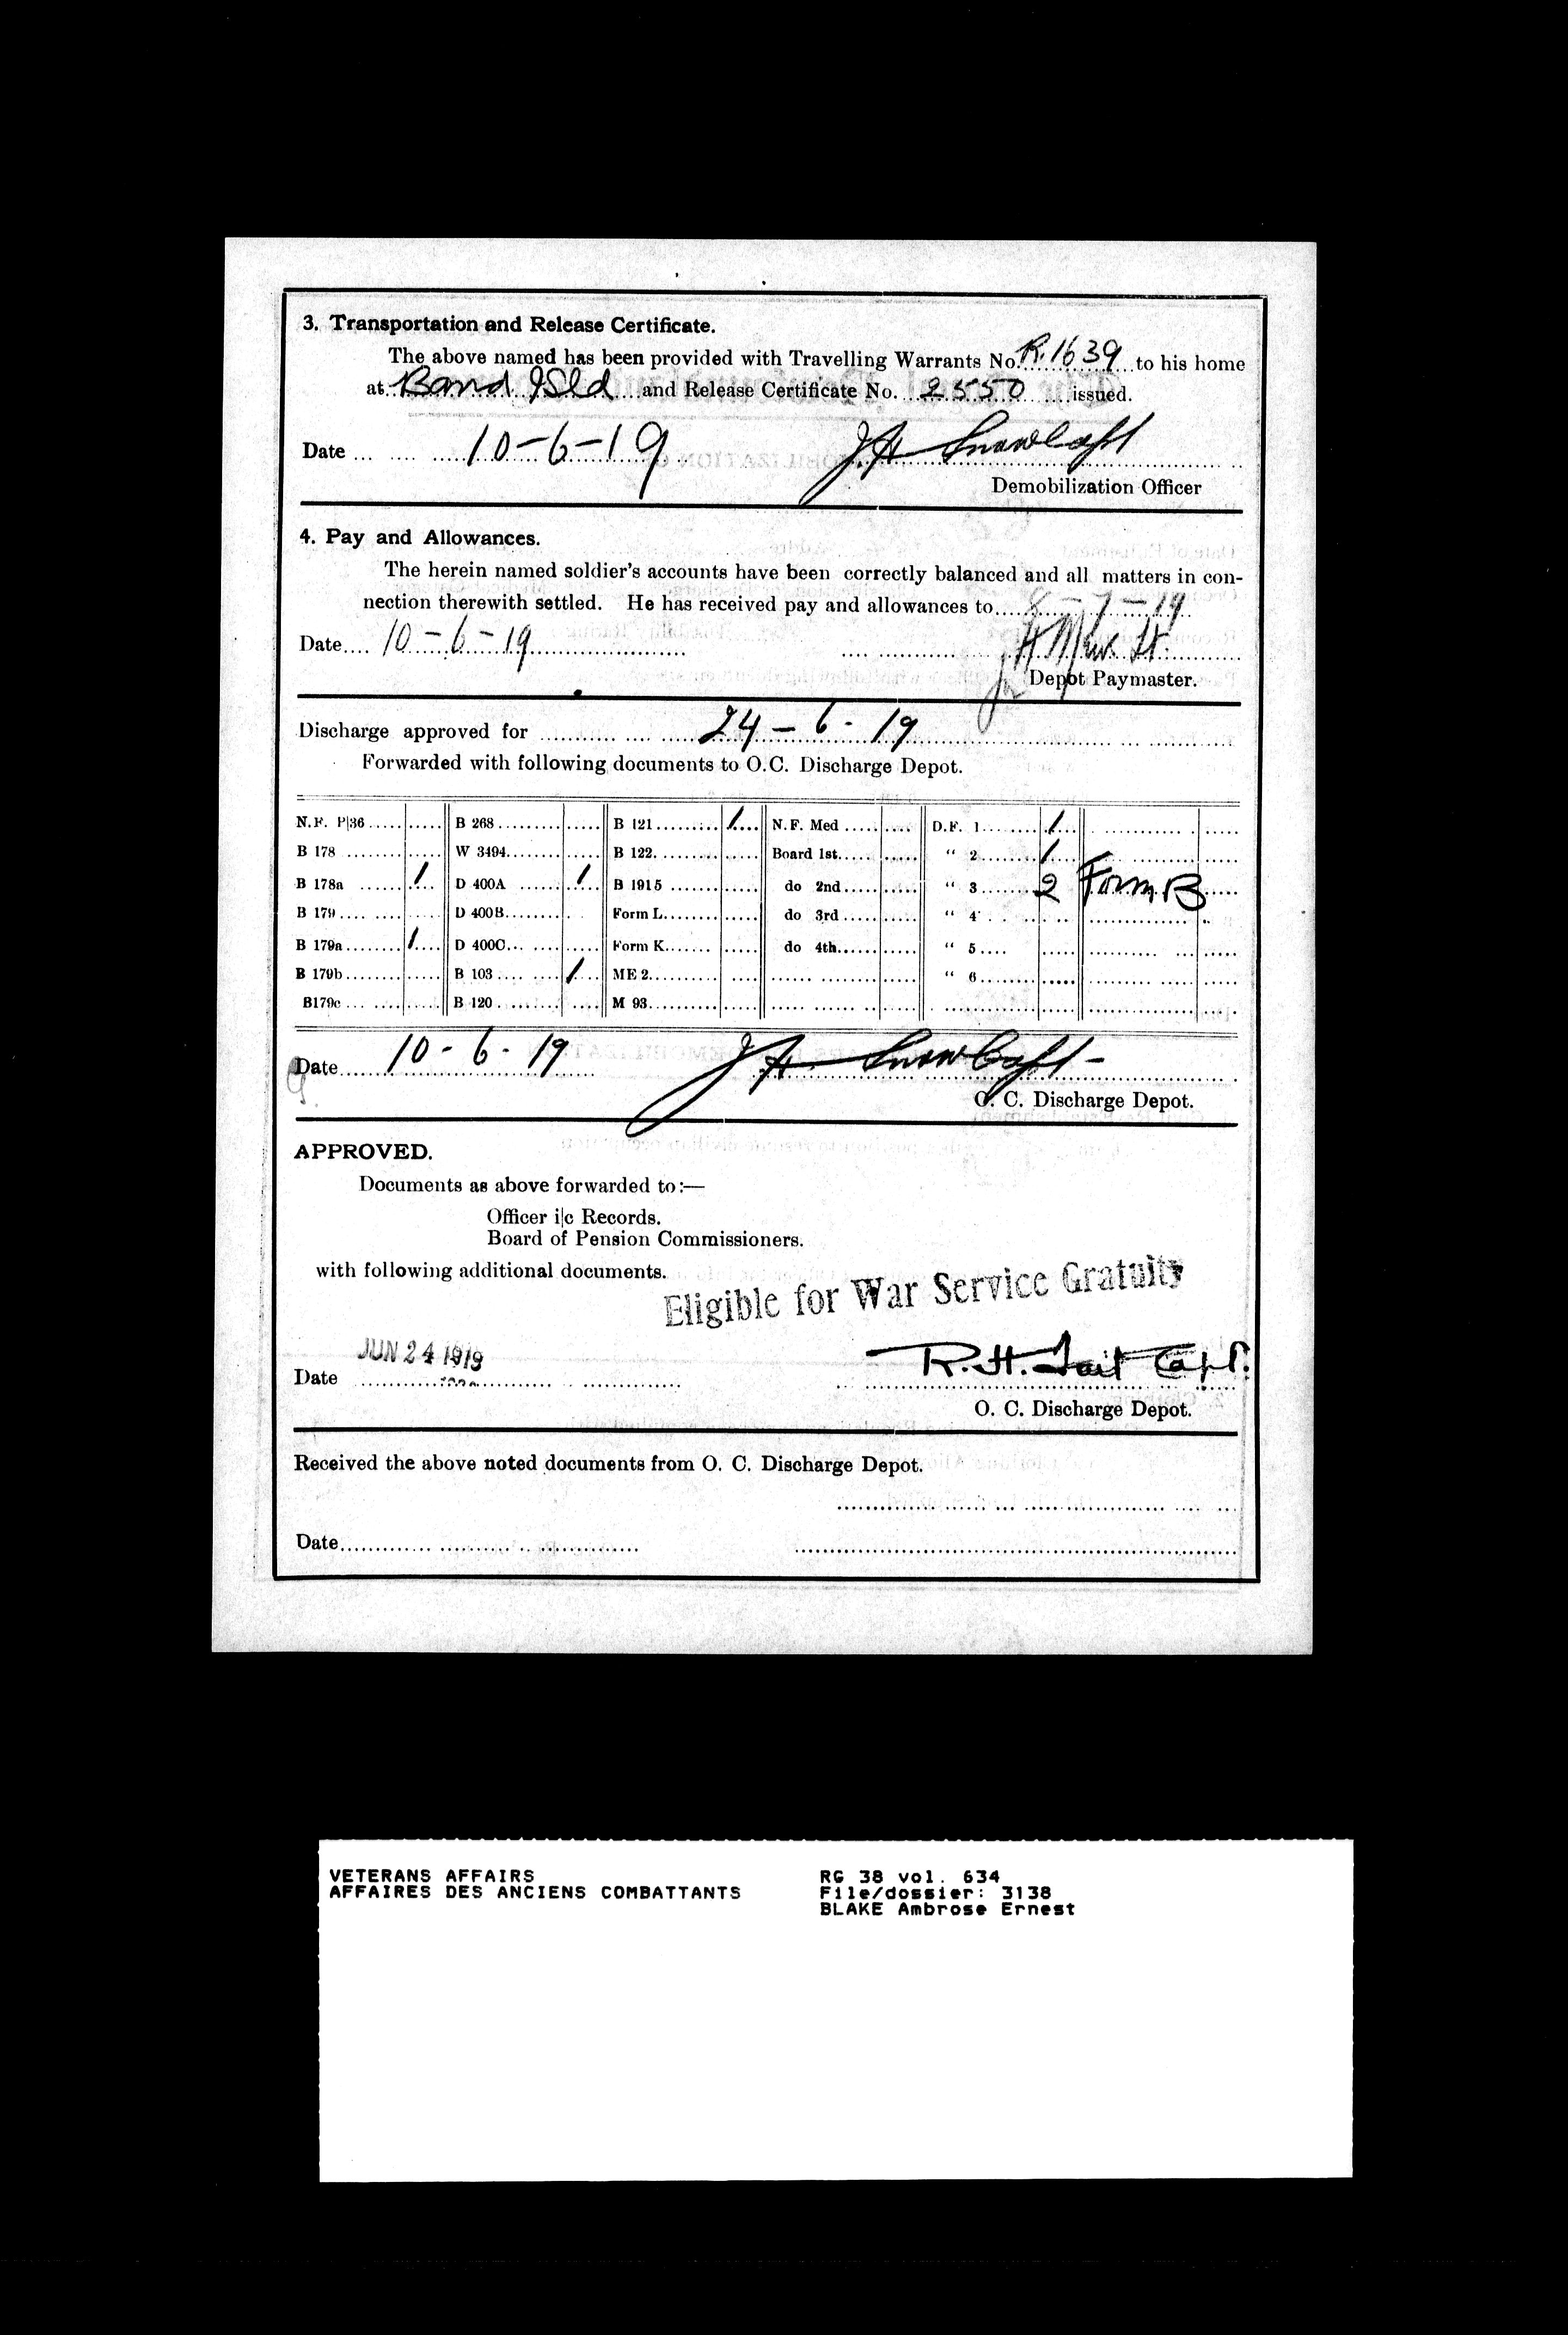 3. Transportation and Release Certificate.
The above named has been provided with Travelling Warrants No. R.1639 to his home
at Band Isld and Release Certificate No. 2550 issued.
Date 10-6-19 J A Snow Capt
Demobilization Officer
4. Pay and Allowances.
The herein named soldier's accounts have been correctly balanced and all matters in con-
nection therewith settled. He has received pay and allowances to 8-7-19
Date 10-6-19 Lt.
Depot Paymaster.
Discharge approved for 24-6-19
Forwarded with following documents to O.C. Discharge Depot.
N.F. P|36 B 268 B 121 1 N.F. Med D.F. 1 1
B 178 W 3494 B 122 Board 1st " 2 1
B 178a 1 D 400A 1 B 1915 do 2nd " 3 2 Form B
B 179 D 400B Form L do 3rd " 4
B 179a 1 D 400C Form K do 4th " 5
B 179b B 103 1 ME 2 " 6
B179c B 120 M 93
Date 10-6-19 J A Snow Capt
O. C. Discharge Depot.
APPROVED.
Documents as above forwarded to:—
Officer i|c Records.
Board of Pension Commissioners.
with following additional documents.
Eligible for War Service Gratuity
JUN 24 1919
Date R. H. Tait Capt.
O. C. Discharge Depot.
Received the above noted documents from O. C. Discharge Depot.
Date
VETERANS AFFAIRS RG 38 vol. 634
AFFAIRES DES ANCIENS COMBATTANTS File/dossier: 3138
BLAKE Ambrose Ernest